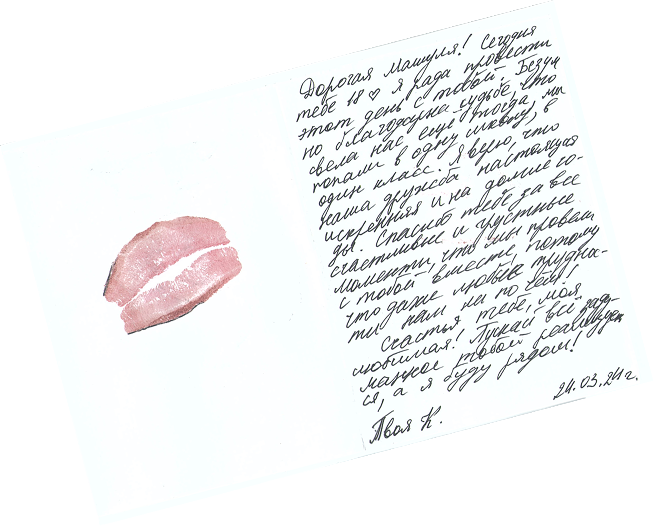 Дорогая Машуля! Сегодня
тебе 18 ♡ я рада провести
этот день с тобой. Безум
но благодарна судьбе, что
свела нас ещё тогда, мы
попали в одну школу, в
один класс. Я верю, что
наша дружба настоящая
искренняя и на долгие го-
ды. Спасибо тебе за все
счастливые и грустные
моменты, что мы провели
с тобой вместе, потому
что даже любые труднос-
ти нам ни по чём!
Счастья тебе, моя
любимая! Пускай всё заду-
манное тобой реализует
ся, а я буду рядом!
24.03.24г.
Твоя К.